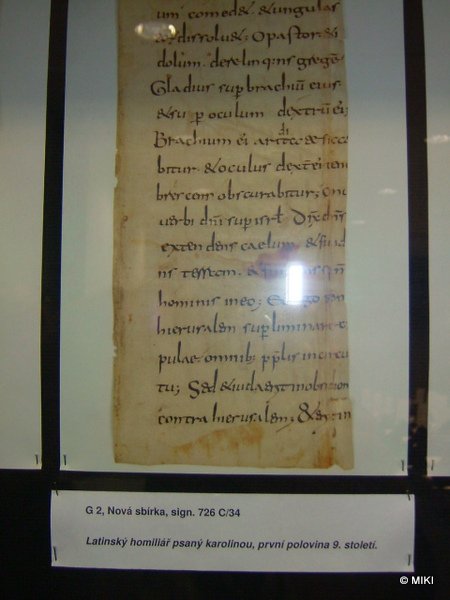 um comed& & ungulas
& dissolu&; O pastor &
dolum. derelinq:ns gregē
Gladius sup brachiū eius
& su p oculum dextrū ei;
Brachium ei aritate sicca
bitur. & oculus dext ei tene
brescens obscurabitur; Onu
uerbi dn̄i sup isrl. Dix dn̄s
extendens caelum & fund
ns terrom. &
hominis in eo; Ecce ego pon
hierusalem sup liminare
pulae omnib; pplis in circu
tu; Sed & iuda erit in obsidion
contra hierusalem; & er: in
G 2, Nová sbírka, sign. 726 C/34
Latinský homiliář psaný karolinou, první polovina 9. století.
© MIKI